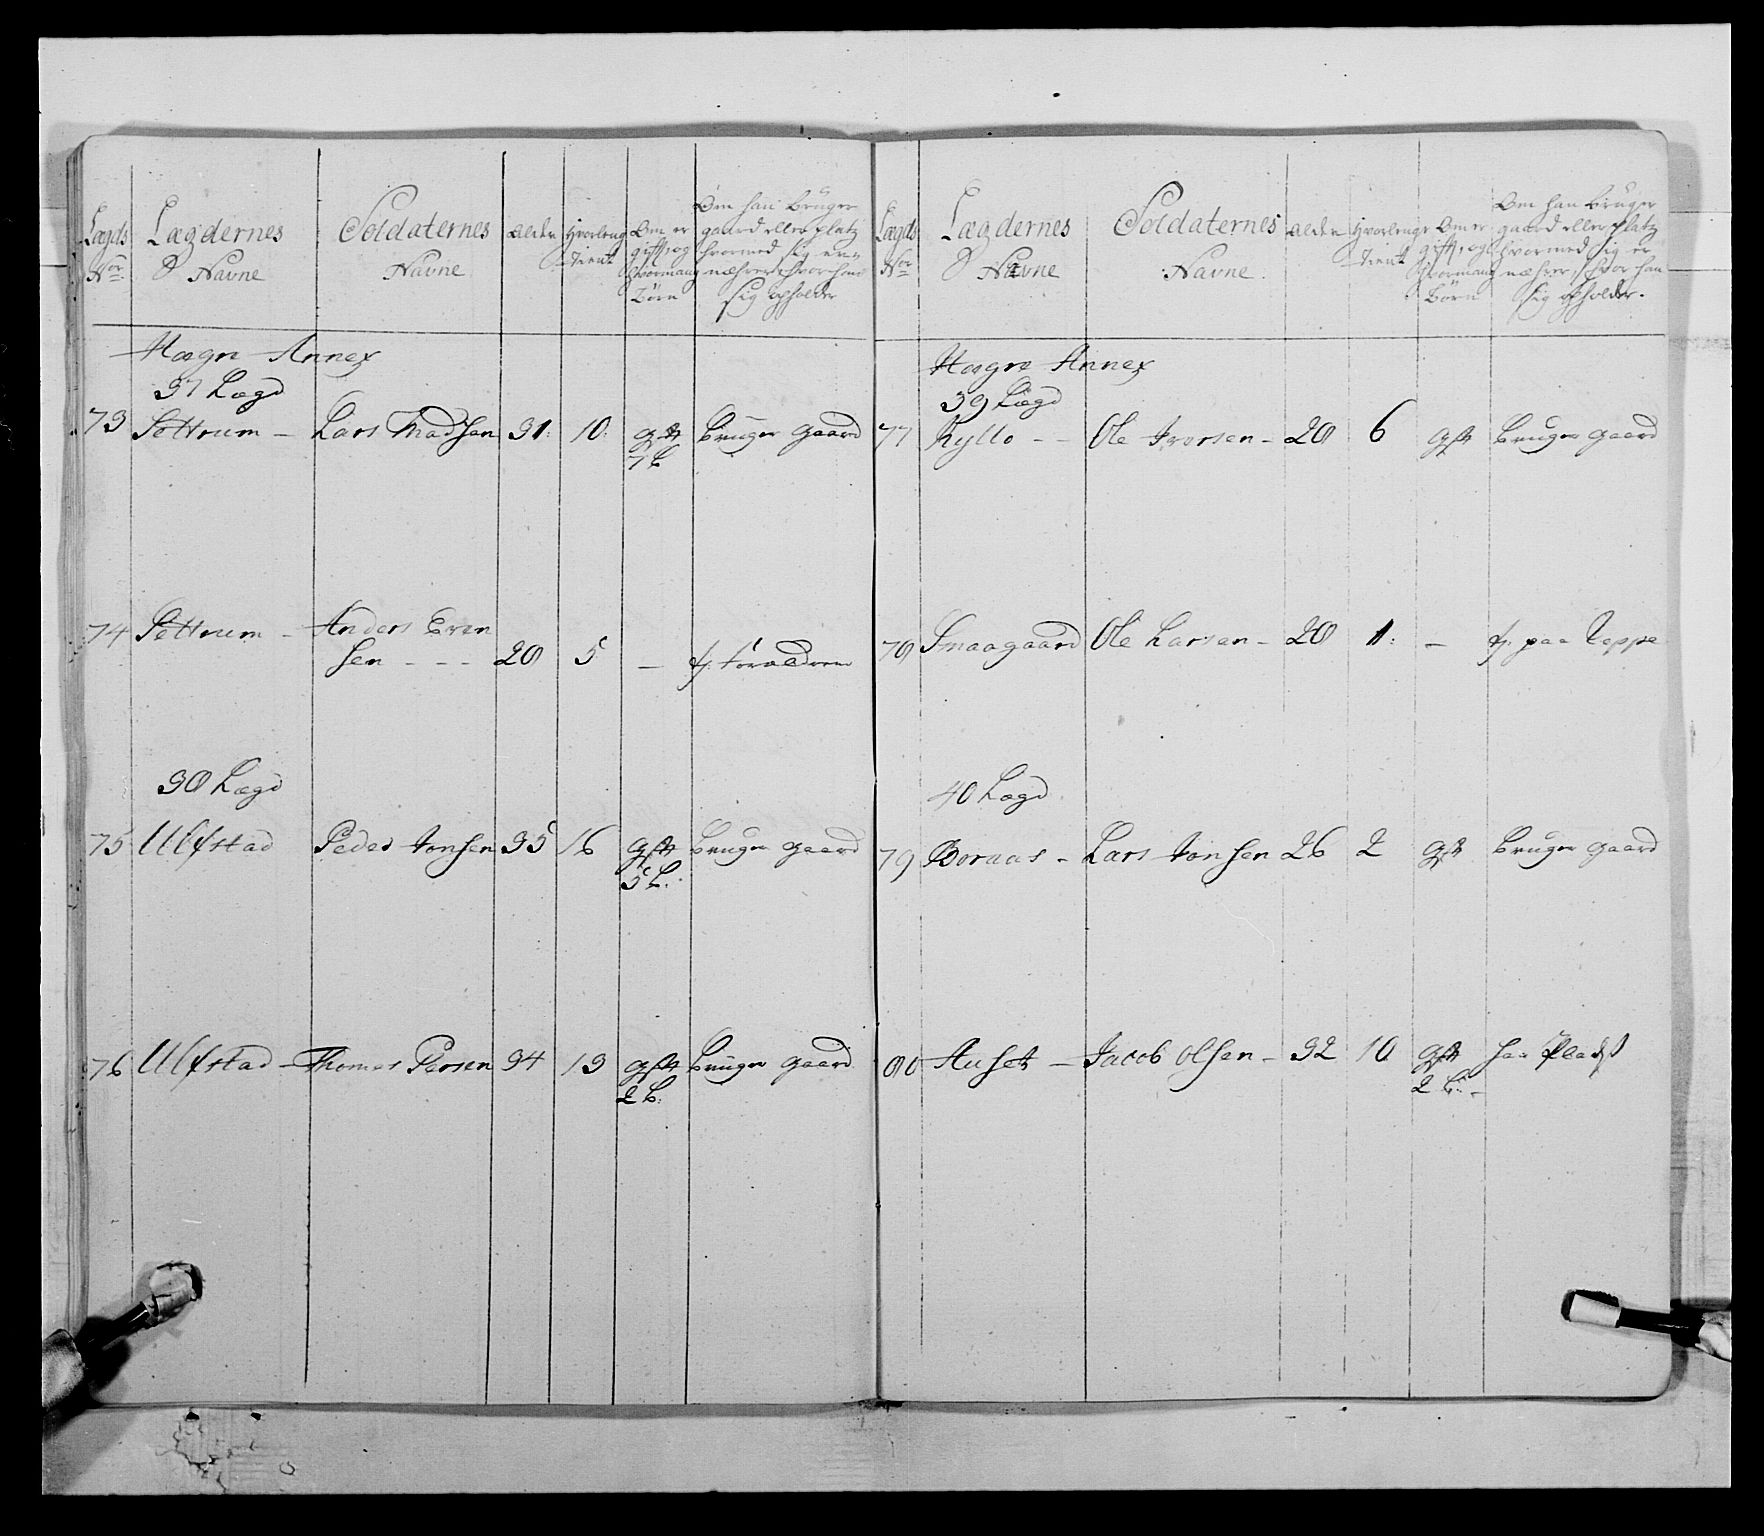 Lægds
No:
Lægdernes
Navne
Soldaternes
Navne
alder
Hvorleng
Tient
Om er
gift, og
hvormang
Börn
Om han bruger
gaard eller platz
hvormed sig er
næhrer, hvor han
sig opholder
Hægre Annex
37 Lægd
73 Settrum – Lars Madsen 31: 10: gift bruger gaard
7 b
74 Settrum – Anders Even
sen - - - 28 5 – tj. forældrene
38 Lægd
75 Ulfstad Peder Jonsen 35 16 gift bruger gaard
5 b.
76 Ulfstad – Thomas Persen 34 13 gift bruger gaard
2 b:
Lægds
No:
Lægdernes
Navne
Soldaternes
Navne
alder
Hvorlenge
Tient
Om er
gift, og
hvormang
Börn
Om han bruger
gaard eller platz
hvormed sig er
næhrer, hvor han
sig opholder.
Hægre Annex
39 Lægd
77 Kyllo – – Ole Iversen – 28 6 gift bruger gaard
78 Smaagaard Ole Larsen – 28 1: – tj. paa Reppe
40 Lægd
79 Boraas – Lars Jonsen 26 2 gift bruger gaard
80 Auset – Jacob Olsen – 32 10 gift har Pladst
2 b: –